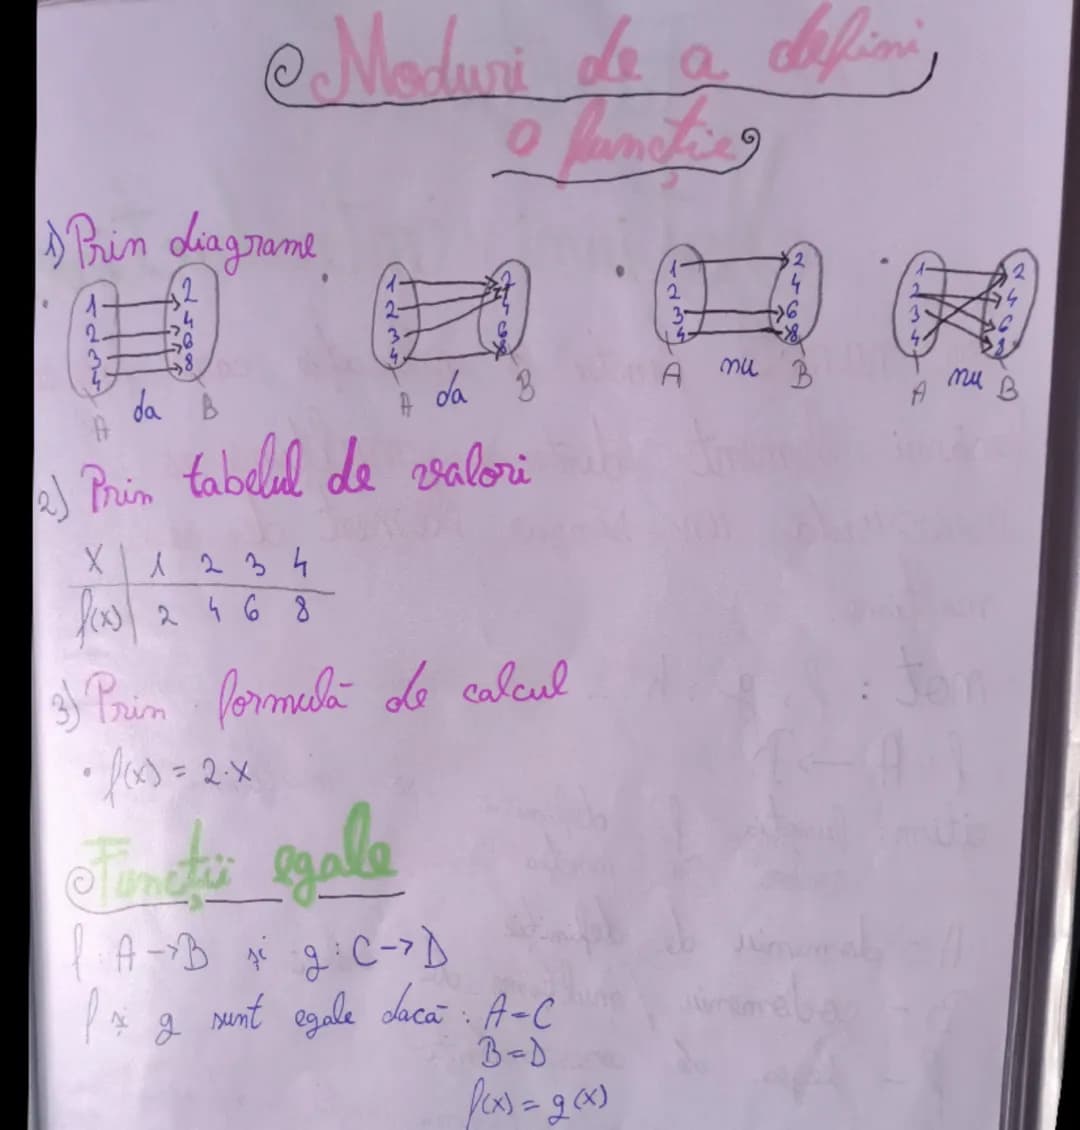 Moduri de a defini
o funcție
1) Prin diagrame
1 2 3 4 2 4 6 8
A da B
1 2 3 4 2 4 6 8
A da B
1 2 3 4 2 4 6 8
A nu B
1 2 3 4 2 4 6 8
A nu B
2) Prin tabelul de valori
x 1 2 3 4
f(x) 2 4 6 8
3) Prin formulă de calcul
• f(x) = 2·x
Funcții egale
f: A->B și g: C->D
f și g sunt egale dacă: A=C
B=D
f(x) = g(x)